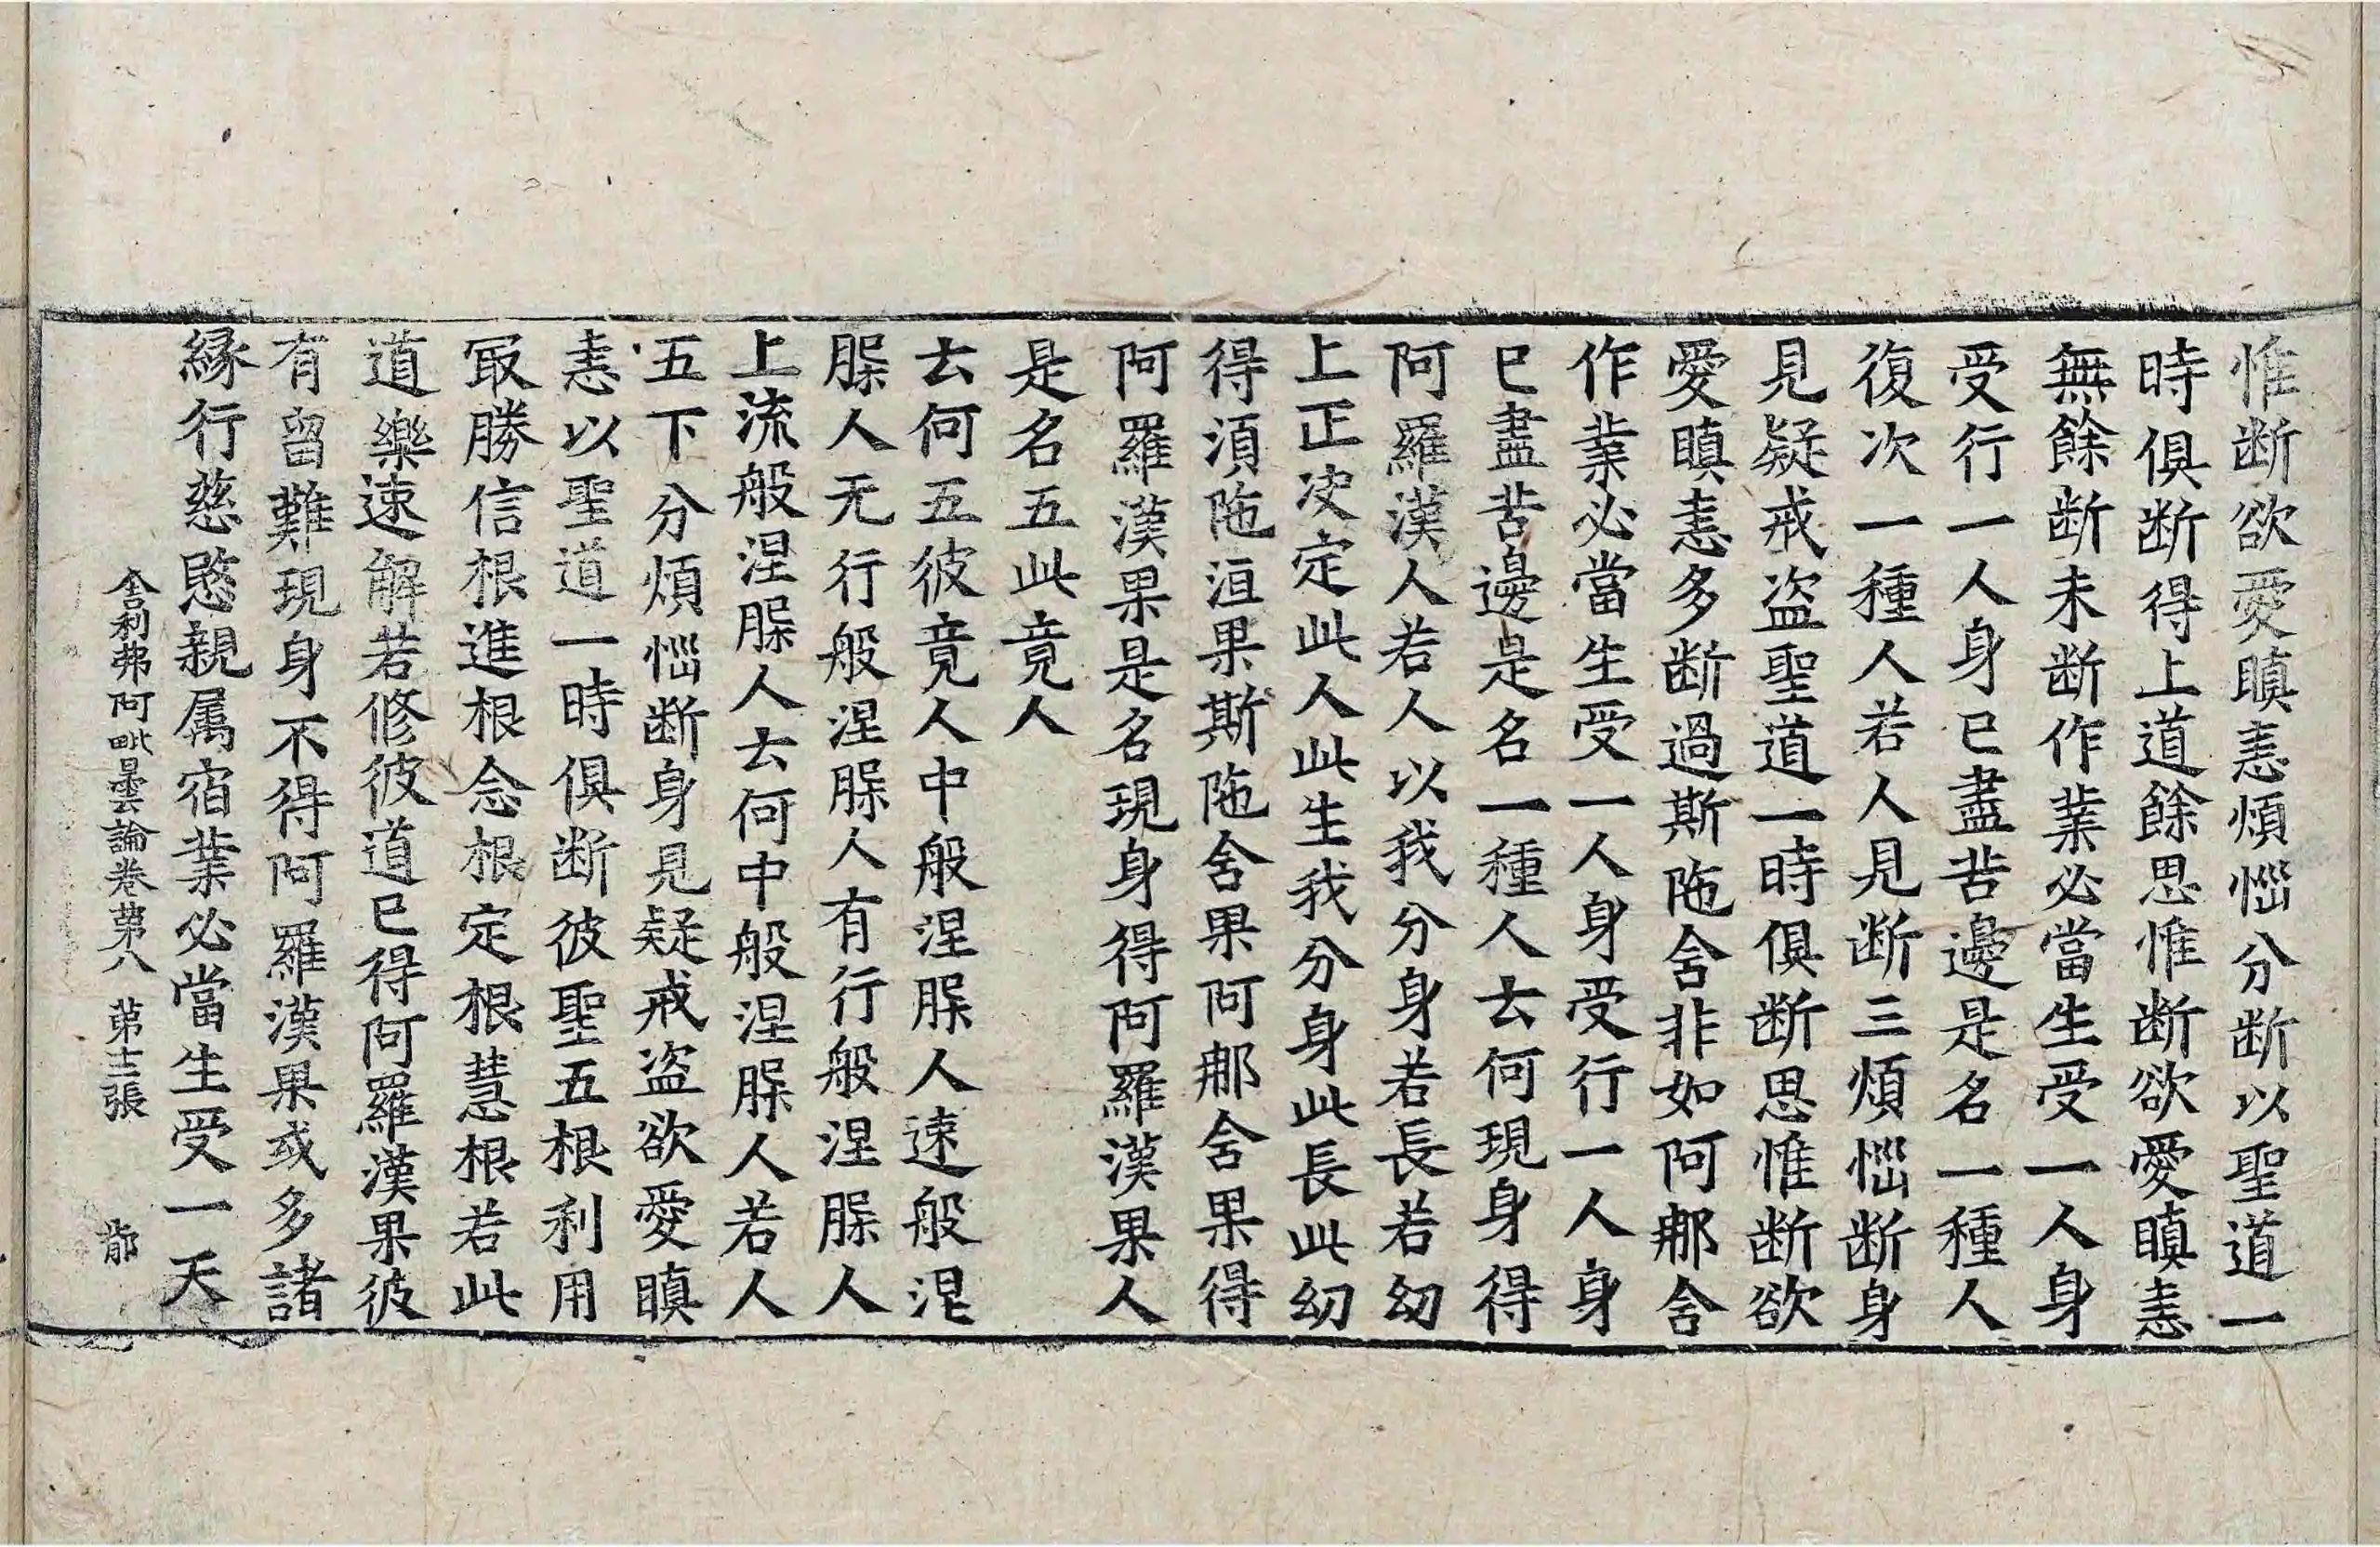 惟断欲愛瞋恚煩惱分断以聖道一
時俱断得上道餘思惟断欲愛瞋恚
無餘断未断作業必當生受一人身
受行一人身已盡苦邊是名一種人
復次一種人若人見断三煩惱断身
見疑戒盗聖道一時俱断思惟断欲
愛瞋恚多断過斯陁含非如阿那含
作業必當生受一人身受行一人身
已盡苦邊是名一種人云何現身得
阿羅漢人若人以我分身若長若幼
上正决定此人此生我分身此長此幼
得湏陁洹果斯陁含果阿那含果得
阿羅漢果是名現身得阿羅漢果人
是名五此竟人
云何五彼竟人中般涅脲人速般涅
脲人无行般涅脲人有行般涅脲人
上流般涅脲人云何中般涅脲人若人
五下分煩惱断身見疑戒盗欲愛瞋
恚以聖道一時俱断彼聖五根利用
冣勝信根進根念根定根慧根若此
道樂速解若修彼道已得阿羅漢果彼
有留難現身不得阿羅漢果或多諸
緣行慈愍親属宿業必當生受一天
舍利弗阿毗曇論卷第八 第十二張